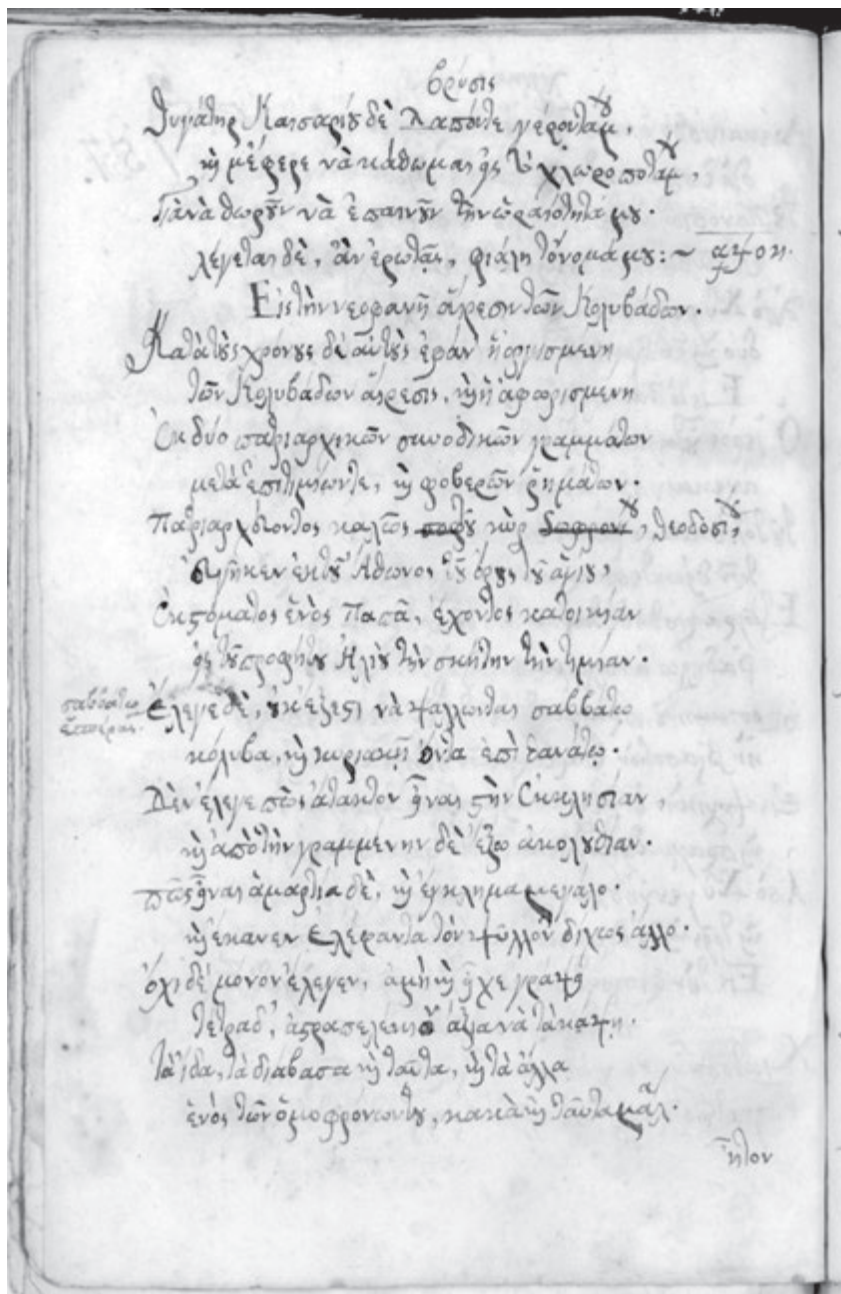 βρύσις
Θυγάτηρ Καισαρίου δὲ Δαπόντε γερουταμου,
καὶ μέφερε νὰ κάθωμαι εἰς τοῦ Χηροποτάμου,
Γιὰ νὰ θωροῦν νὰ ἐπαινοῦν τὴν ὡραιότητά μου.
λέγεται δὲ, ἂν ἐρωτᾷς, φιάλη τ' ὄνομά μου: ~ αψοη.
Εἰς τὴν νεοφανῆ αἵρεσιν τῶν Κολυβάδων.
Κατὰ τοὺς χρόνους δὲ αὐτοὺς ἐφάν' ἡ ὠργισμένη
τῶν Κολυβάδων αἵρεσις, καὶ ἡ ἀφωρισμένη
Ἐκ δύο πατριαρχικῶν συνοδικῶν γραμμάτων
μετὰ ἐπιτιμίων τε, καὶ φοβερῶν ῥημάτων.
Πατριαρχεύοντος καλῶς σοφοῦ κὺρ Σωφρονίου, Θεοδοσίου,
ἐβγῆκεν ἐκ τοῦ Ἄθωνος τοῦ ὄρους τοῦ ἁγίου,
Ἐκ στόματος ἑνὸς Παπᾶ, ἔχοντος κατοικίαν
εἰς τοῦ προφήτου Ἠλιοῦ τὴν σκήτην τὴν τιμίαν.
σαββάτῳ ἑσπέρας.
Ἔλεγε δὲ, οὐκ ἔξεστι νὰ ψάλλωνται σαββάτῳ
κόλυβα, καὶ κυριακῇ ὄντα ἐπὶ θανάτῳ.
Δὲν ἔλεγε πῶς ἄτακτον εἶναι στὴν Ἐκκλησίαν
καὶ ἀπὸ τὴν γραμμένην δὲ ἔξω ἀκολουθίαν.
πῶς εἶναι ἁμαρτία δὲ, καὶ ἔγκλημα μεγάλο.
καὶ ἔκανεν ἐλέφαντα τὸν ψύλλον δίχως ἄλλο.
ὄχι δὲ μόνον ἔλεγεν, ἀμὴ καὶ εἶχε γράψει
τετράδι', ἀστραπελέκι ἄξια νὰ τὰ κάψῃ.
τὰ εἶδα, τὰ διάβασα καὶ ταῦτα, καὶ τὰ ἄλλα
ἑνὸς τῶν ὁμοφρόνων του, κακὰ καὶ ταῦτα μάλα.
ἦτον